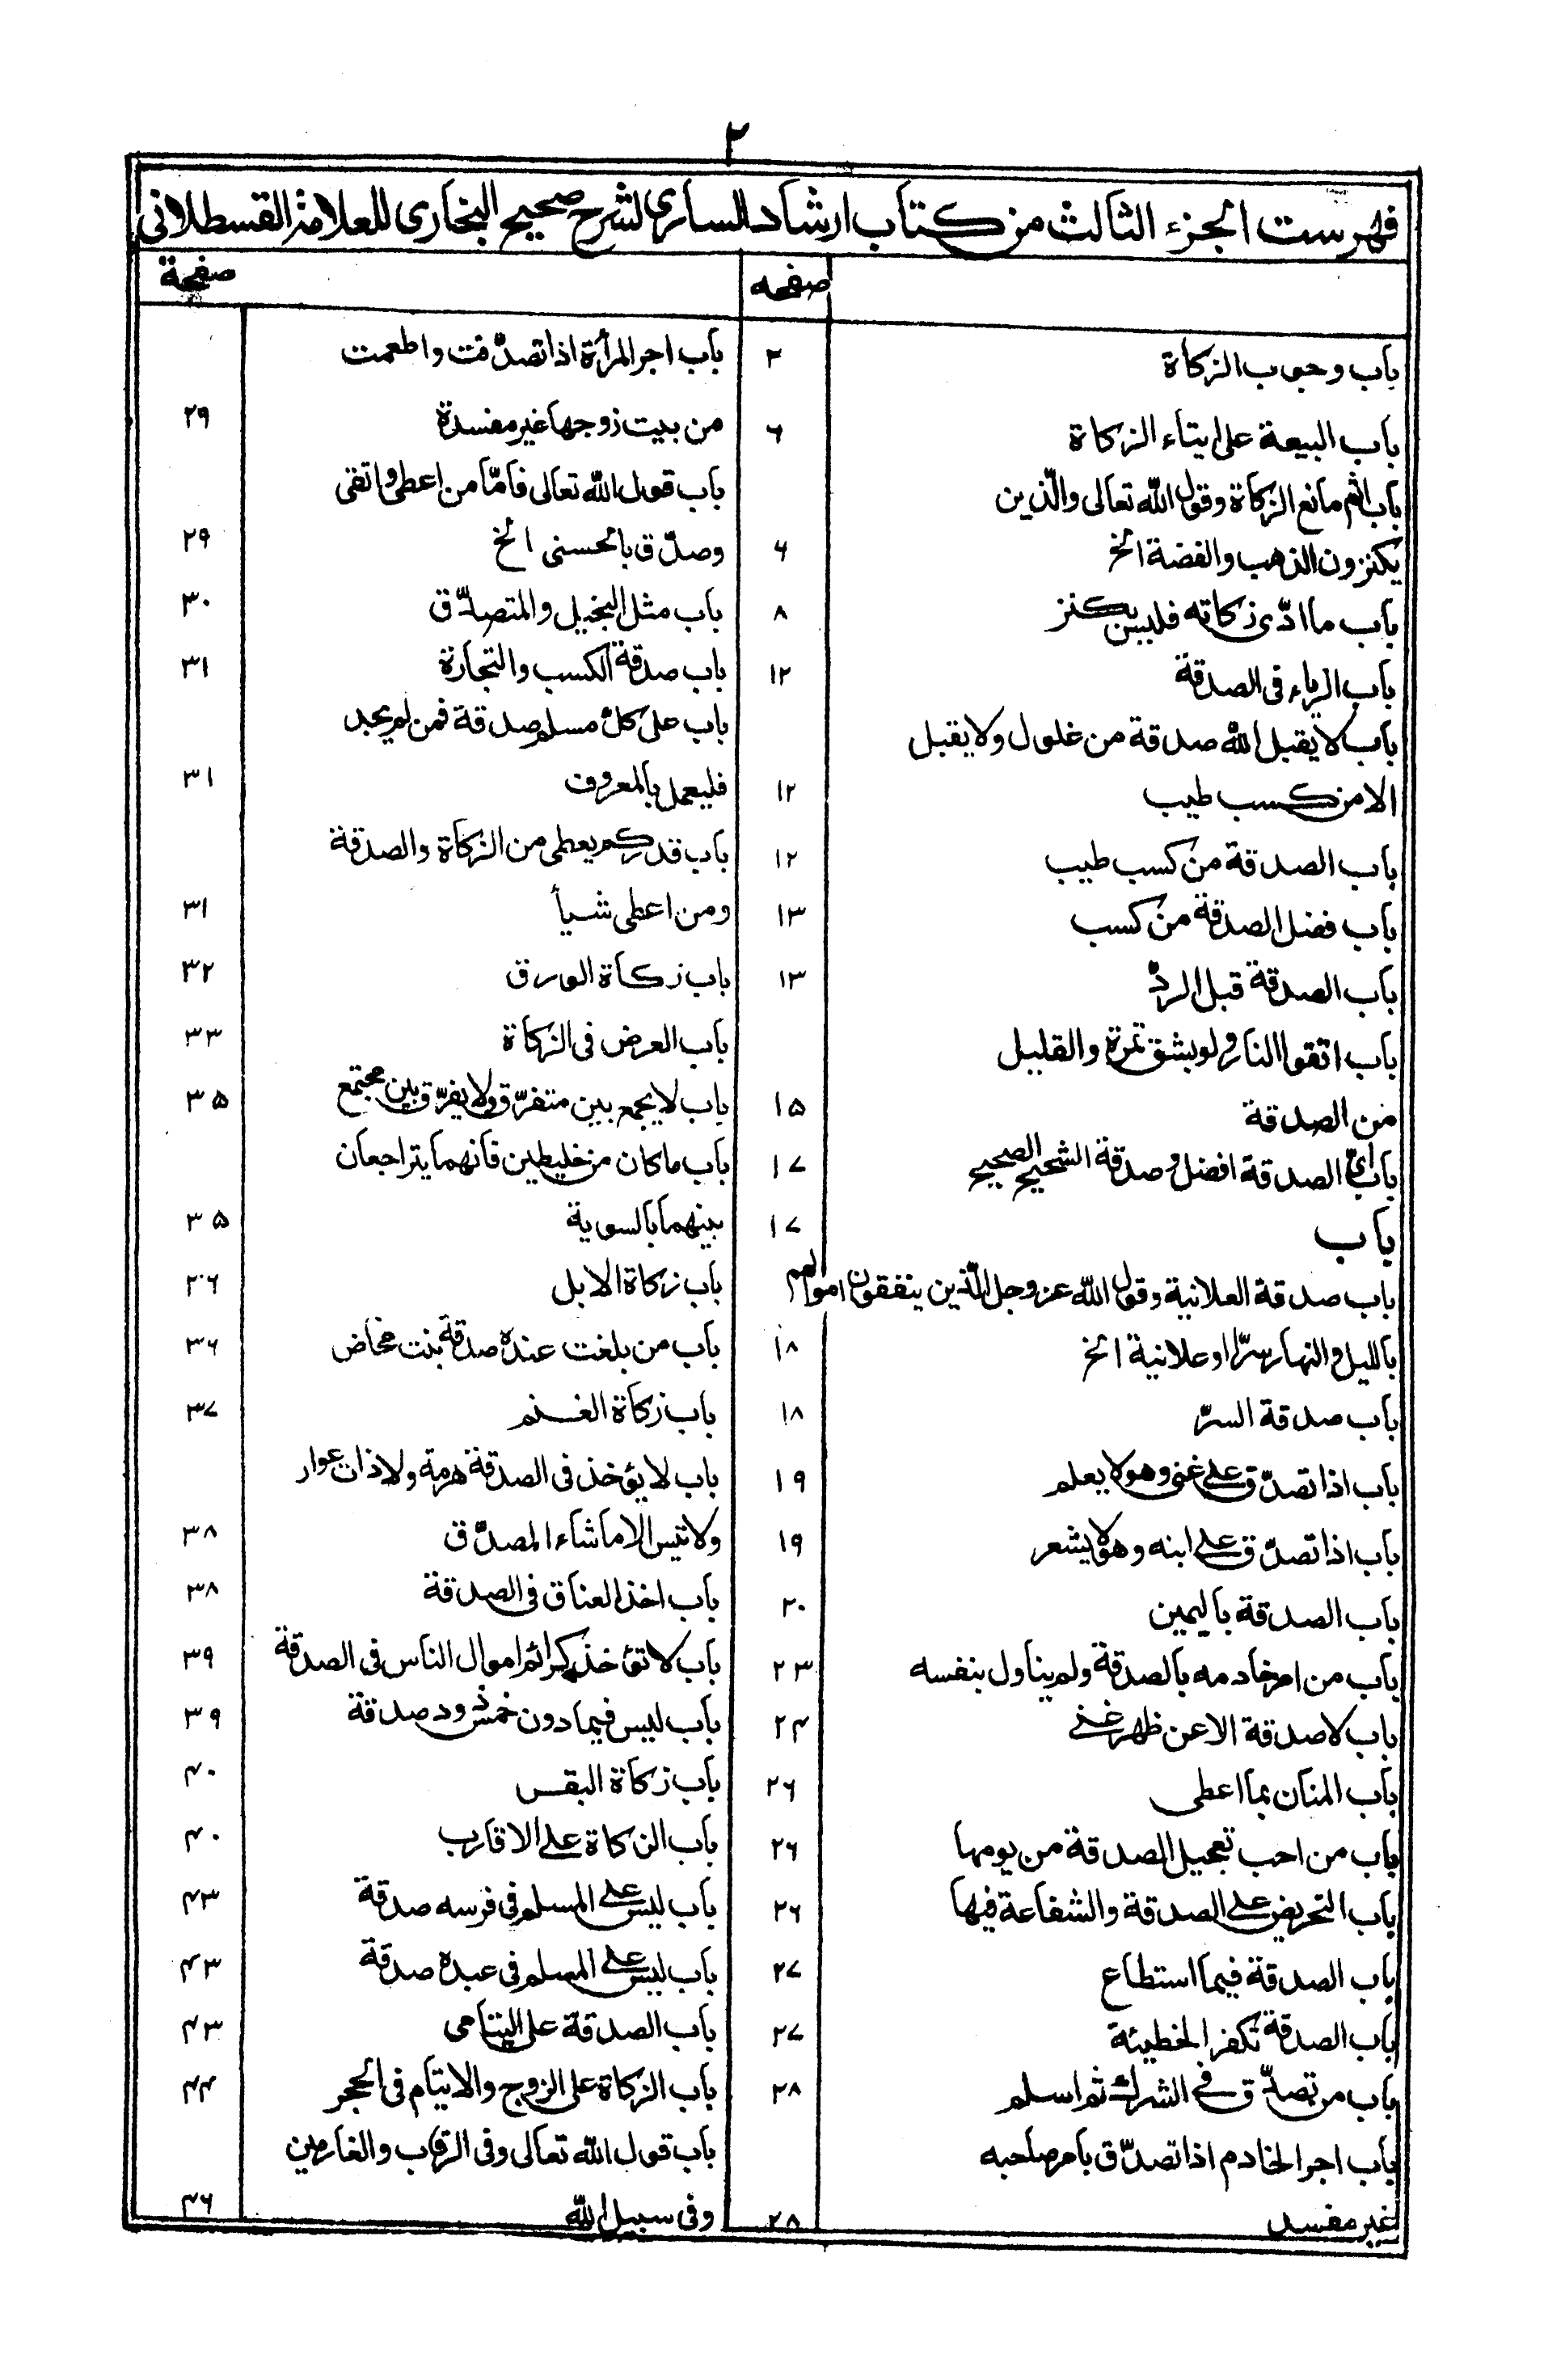 ٢
فهرست الجزء الثالث من كتاب ارشاد الساري لشرح صحيح البخارى للعلامة القسطلانى
صفحه
باب وجوب الزكاة ٢
باب البيعة على ايتاء الزكاة ٦
باب اثم مانع الزكاة وقول الله تعالى والّذين
يكنزون الذهب والفضة الخ ٦
باب ما ادّى زكاته فليس بكنز ٨
باب الرياء فى الصدقة ١٢
باب لا يقبل الله صدقة من غلول ولا يقبل
الا من كسب طيب ١٢
باب الصدقة من كسب طيب ١٢
باب فضل الصدقة من كسب ١٣
باب الصدقة قبل الردّ ١٣
باب اتقوا النار ولو بشق تمرة والقليل
من الصدقة ١٥
باب اىّ الصدقة افضل وصدقة الشحيح الصحيح ١٧
باب ١٧
باب صدقة العلانية وقول الله عز وجل الّذين ينفقون اموالهم
بالليل والنهار سرّا وعلانية الخ ١٨
باب صدقة السرّ ١٨
باب اذا تصدّق على غنى وهو لا يعلم ١٩
باب اذا تصدّق على ابنه وهو لا يشعر ١٩
باب الصدقة باليمين ٢٠
باب من امر خادمه بالصدقة ولم يناول بنفسه ٢٣
باب لا صدقة الا عن ظهر غنى ٢٤
باب المنان بما اعطى ٢٦
باب من احب تعجيل الصدقة من يومها ٢٦
باب التحريض على الصدقة والشفاعة فيها ٢٦
باب الصدقة فيما استطاع ٢٧
باب الصدقة تكفر الخطيئة ٢٧
باب من تصدّق فى الشرك ثم اسلم ٢٨
باب اجر الخادم اذا تصدّق بامر صاحبه
غير مفسد ٢٨
صفحة
باب اجر المرأة اذا تصدّقت واطعمت
من بيت زوجها غير مفسدة ٢٩
باب قول الله تعالى فامّا من اعطى واتقى
وصدّق بالحسنى الخ ٢٩
باب مثل البخيل والمتصدّق ٣٠
باب صدقة الكسب والتجارة ٣١
باب على كل مسلم صدقة فمن لم يجد
فليعمل بالمعروف ٣١
باب قدركم يعطى من الزكاة والصدقة
ومن اعطى شيأ ٣١
باب زكاة الورق ٣٢
باب العرض فى الزكاة ٣٣
باب لا يجمع بين متفرّق ولا يفرّق بين مجتمع ٣٥
باب ما كان من خليطين فانهما يتراجعان
بينهما بالسوية ٣٥
باب زكاة الابل ٣٦
باب من بلغت عنده صدقة بنت مخاض ٣٦
باب زكاة الغنم ٣٧
باب لا يؤخذ فى الصدقة هرمة ولا ذات عوار
ولا تيس الا ما شاء المصدّق ٣٨
باب اخذ العناق فى الصدقة ٣٨
باب لا تؤخذ كرائم اموال الناس فى الصدقة ٣٩
باب ليس فيما دون خمس ذود صدقة ٣٩
باب زكاة البقر ٤٠
باب الزكاة على الاقارب ٤٠
باب ليس على المسلم فى فرسه صدقة ٤٣
باب ليس على المسلم فى عبده صدقة ٤٣
باب الصدقة على اليتامى ٤٣
باب الزكاة على الزوج والايتام فى الحجر ٤٤
باب قول الله تعالى وفى الرقاب والغارمين
وفى سبيل الله ٤٦